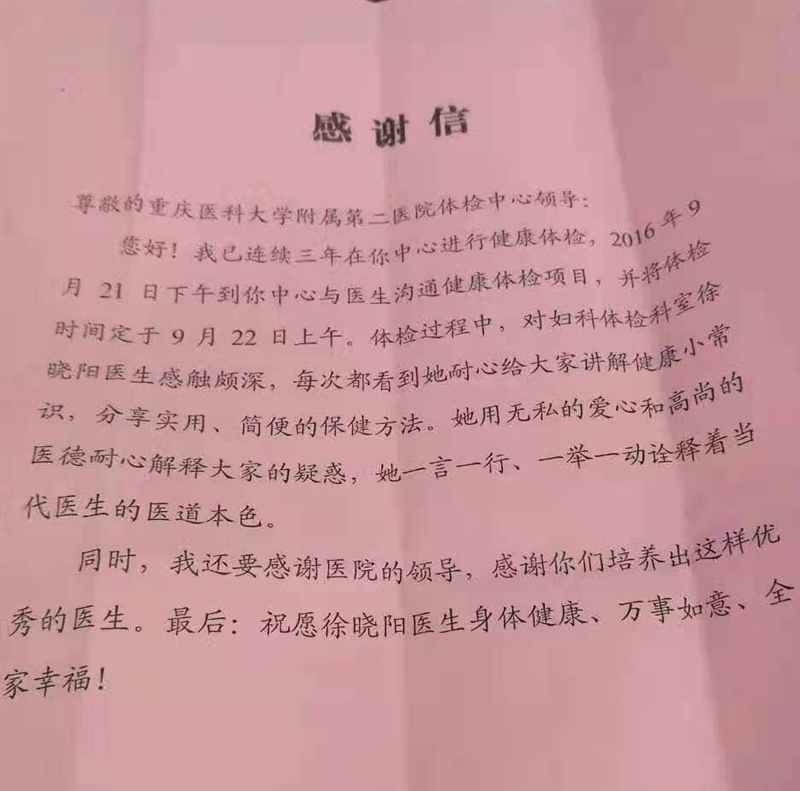 感谢信
尊敬的重庆医科大学附属第二医院体检中心领导：
您好！我已连续三年在你中心进行健康体检，2016年9
月 21 日下午到你中心与医生沟通健康体检项目，并将体检
时间定于 9 月 22 日上午。体检过程中，对妇科体检科室徐
晓阳医生感触颇深，每次都看到她耐心给大家讲解健康小常
识，分享实用、简便的保健方法。她用无私的爱心和高尚的
医德耐心解释大家的疑惑，她一言一行、一举一动诠释着当
代医生的医道本色。
同时，我还要感谢医院的领导，感谢你们培养出这样优
秀的医生。最后：祝愿徐晓阳医生身体健康、万事如意、全
家幸福！